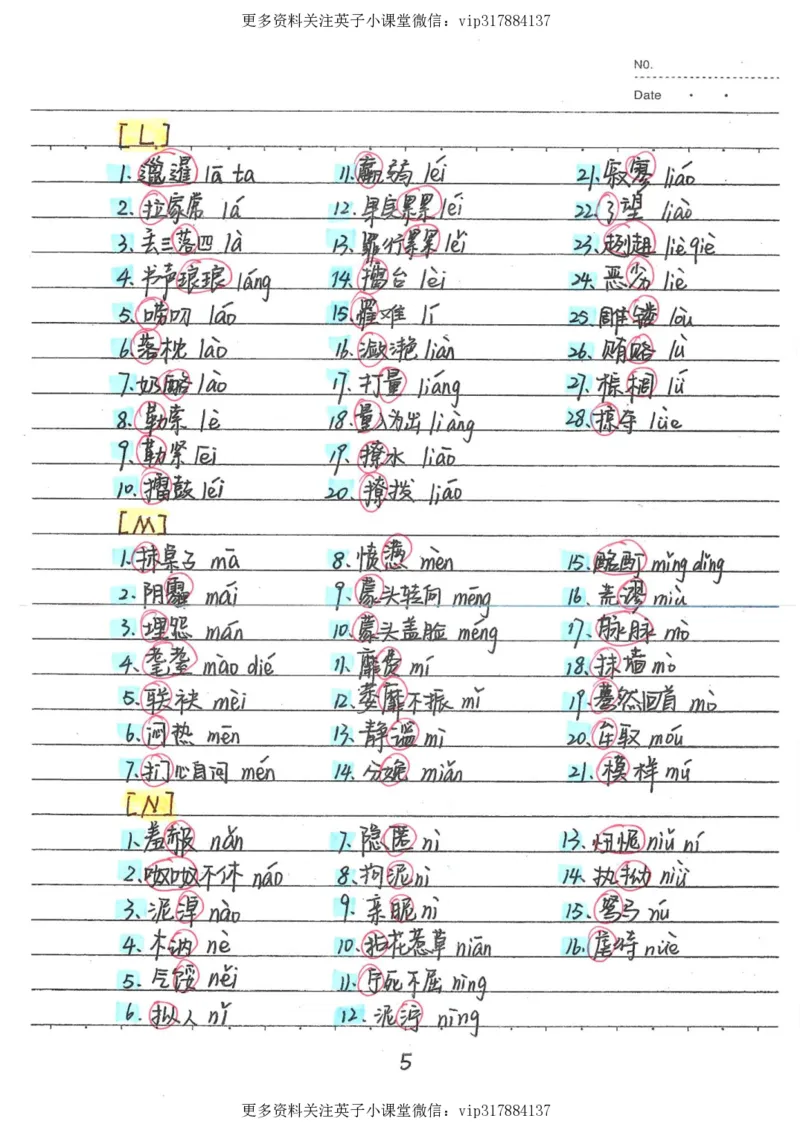 更多资料关注英子小课堂微信：vip317884137
NO.
Date
[L]
1、邋遢 lā ta
2、拉家常 lá
3、丢三落四 là
4、书声琅琅 láng
5、唠叨 láo
6、落枕 lào
7、奶酪 lào
8、勒索 lè
9、勒紧 lēi
10、擂鼓 léi
11、羸弱 léi
12、果实累累 léi
13、罪行累累 lěi
14、擂台 lèi
15、罹难 lí
16、潋滟 liàn
17、打量 liáng
18、量入为出 liàng
19、撩水 liāo
20、撩拨 liáo
21、寂寥 liáo
22、了望 liào
23、趔趄 liè qiè
24、恶劣 liè
25、雕镂 lòu
26、贿赂 lù
27、棕榈 lǘ
28、掠夺 lüè
[M]
1、抹桌子 mā
2、阴霾 mái
3、埋怨 mán
4、耄耋 mào dié
5、联袂 mèi
6、闷热 mēn
7、扪心自问 mén
8、愤懑 mèn
9、蒙头转向 mēng
10、蒙头盖脸 méng
11、靡费 mí
12、萎靡不振 mǐ
13、静谧 mì
14、分娩 miǎn
15、酩酊 mǐng dǐng
16、荒谬 miù
17、脉脉 mò
18、抹墙 mò
19、蓦然回首 mò
20、牟取 móu
21、模样 mú
[N]
1、羞赧 nǎn
2、呶呶不休 náo
3、泥淖 nào
4、木讷 nè
5、气馁 něi
6、拟人 nǐ
7、隐匿 nì
8、拘泥 nì
9、亲昵 nì
10、拈花惹草 niān
11、宁死不屈 nìng
12、泥泞 nìng
13、忸怩 niǔ ní
14、执拗 niù
15、驽马 nú
16、虐待 nüè
5
更多资料关注英子小课堂微信：vip317884137